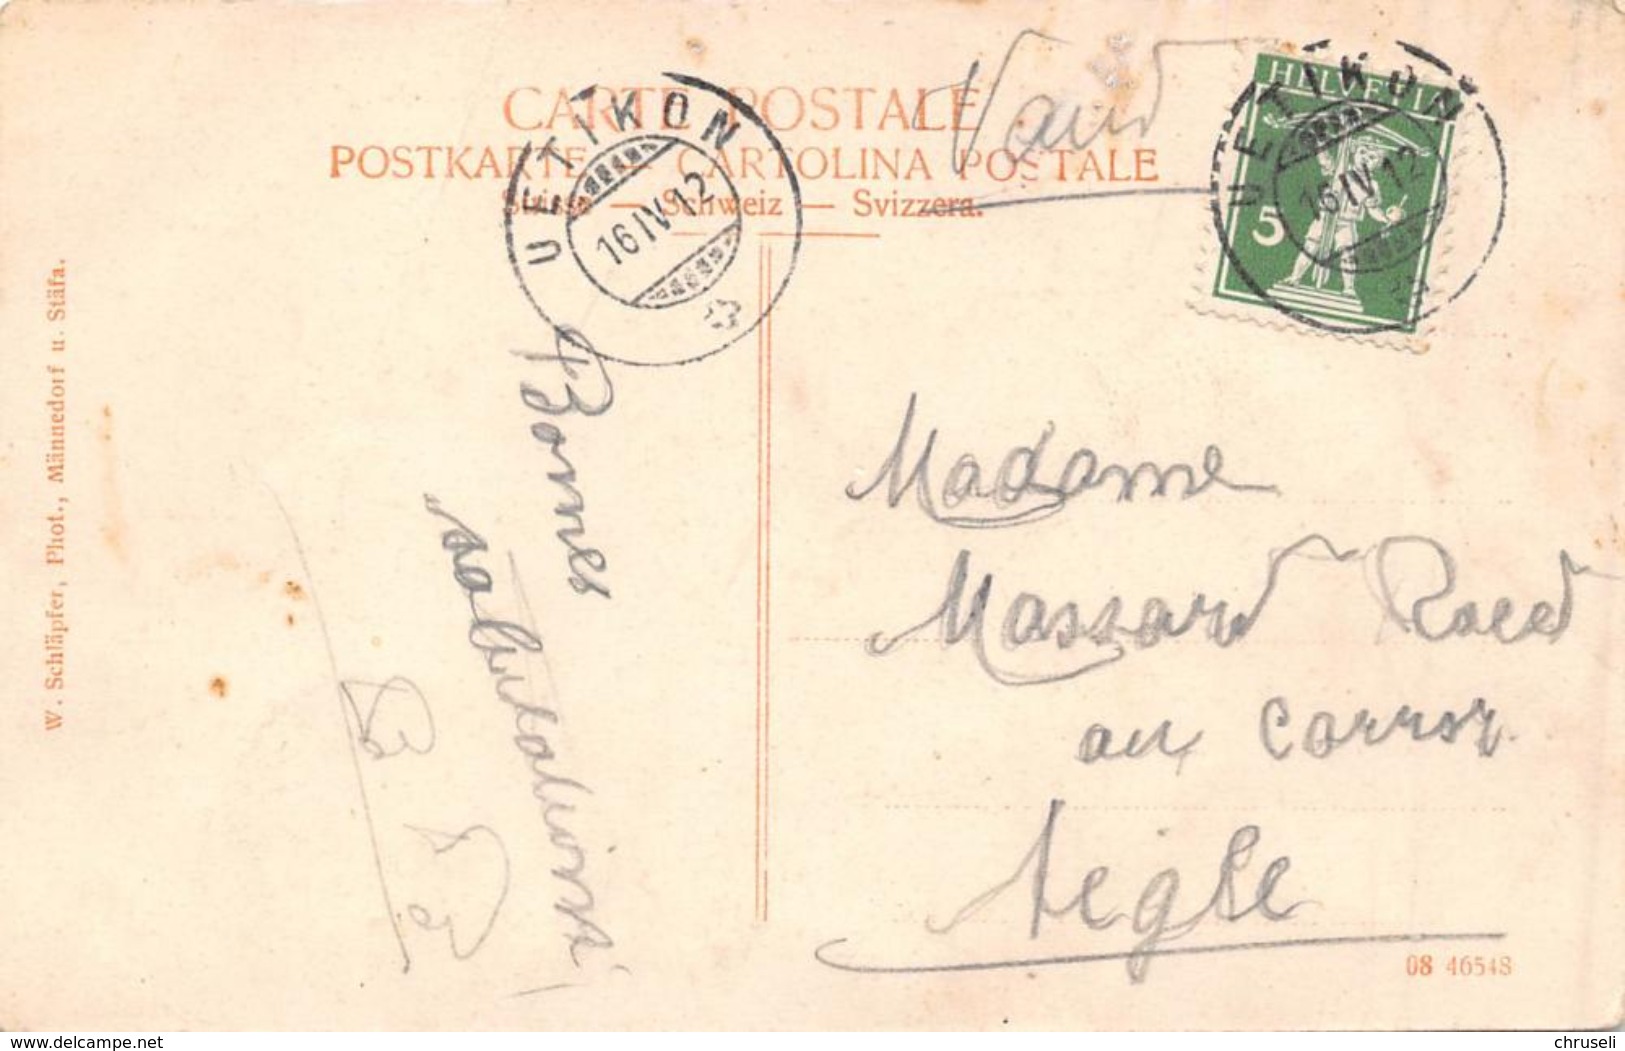 CARTE POSTALE
POSTKARTE — CARTOLINA POSTALE
Suisse — Schweiz — Svizzera.
Vaud
UETIKON
16 IV 12
HELVETIA
5
UETIKON
16 IV 12
W. Schläpfer, Phot., Männedorf u. Stäfa.
Bonnes
salutations
Madame
Massard
au
Aigle
08 46548
delcampe.net
chruseli